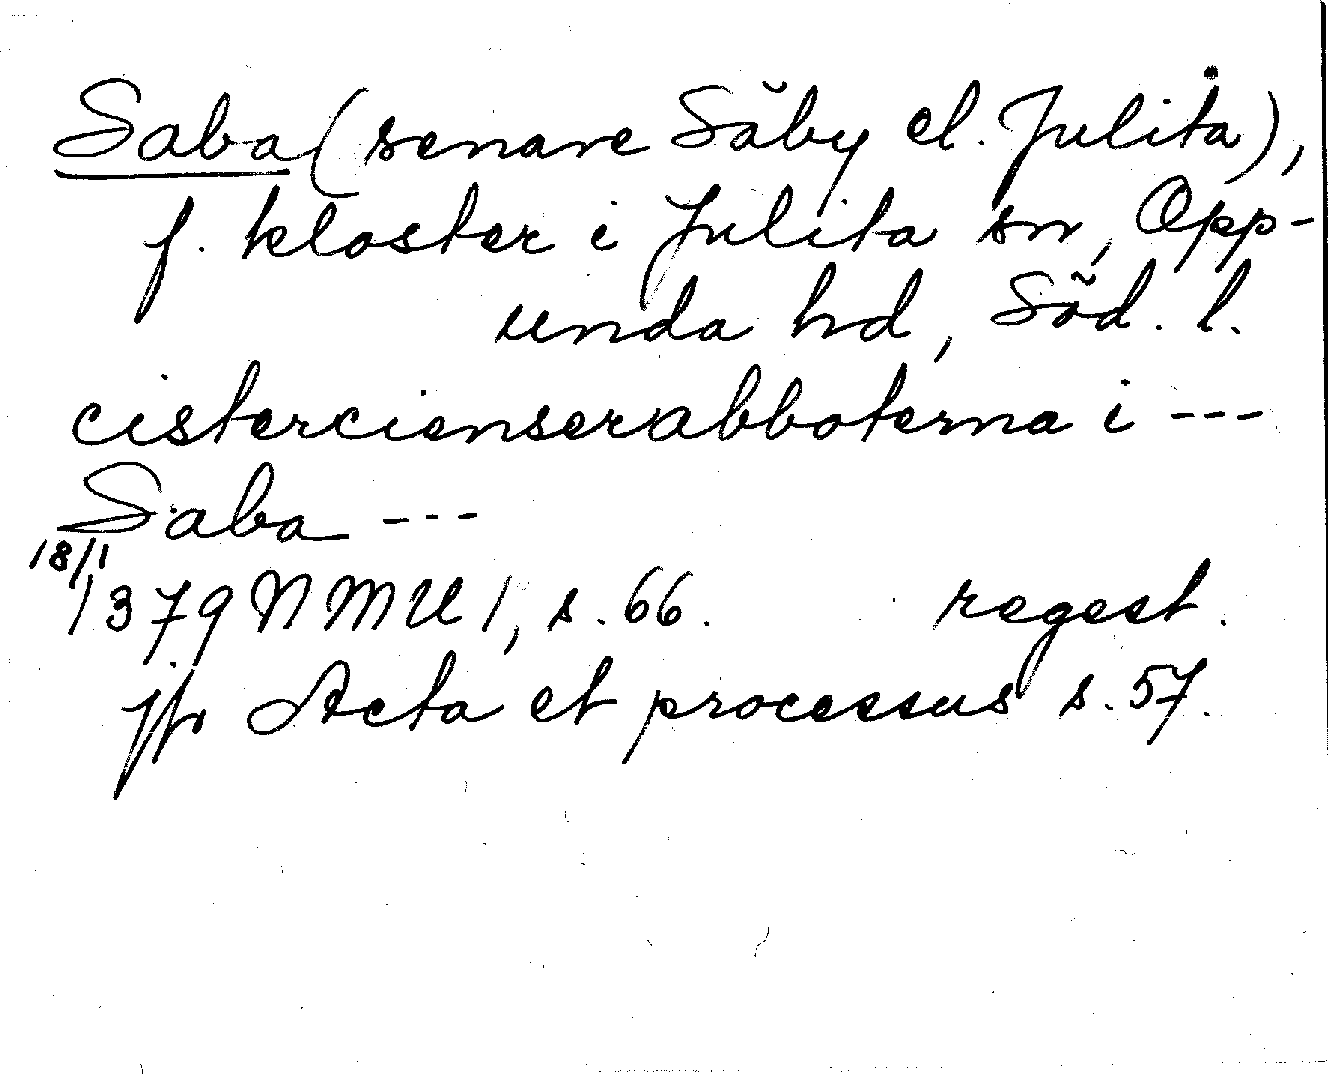 Saba (senare Säby el. Julita),
f. kloster i Julita sn, Opp-
unda hd, Söd. l.
cistercienserabboterna i ---
Saba ---
18/1
1379 NMU 1, s. 66. regest.
jfr Acta et processus s. 57.